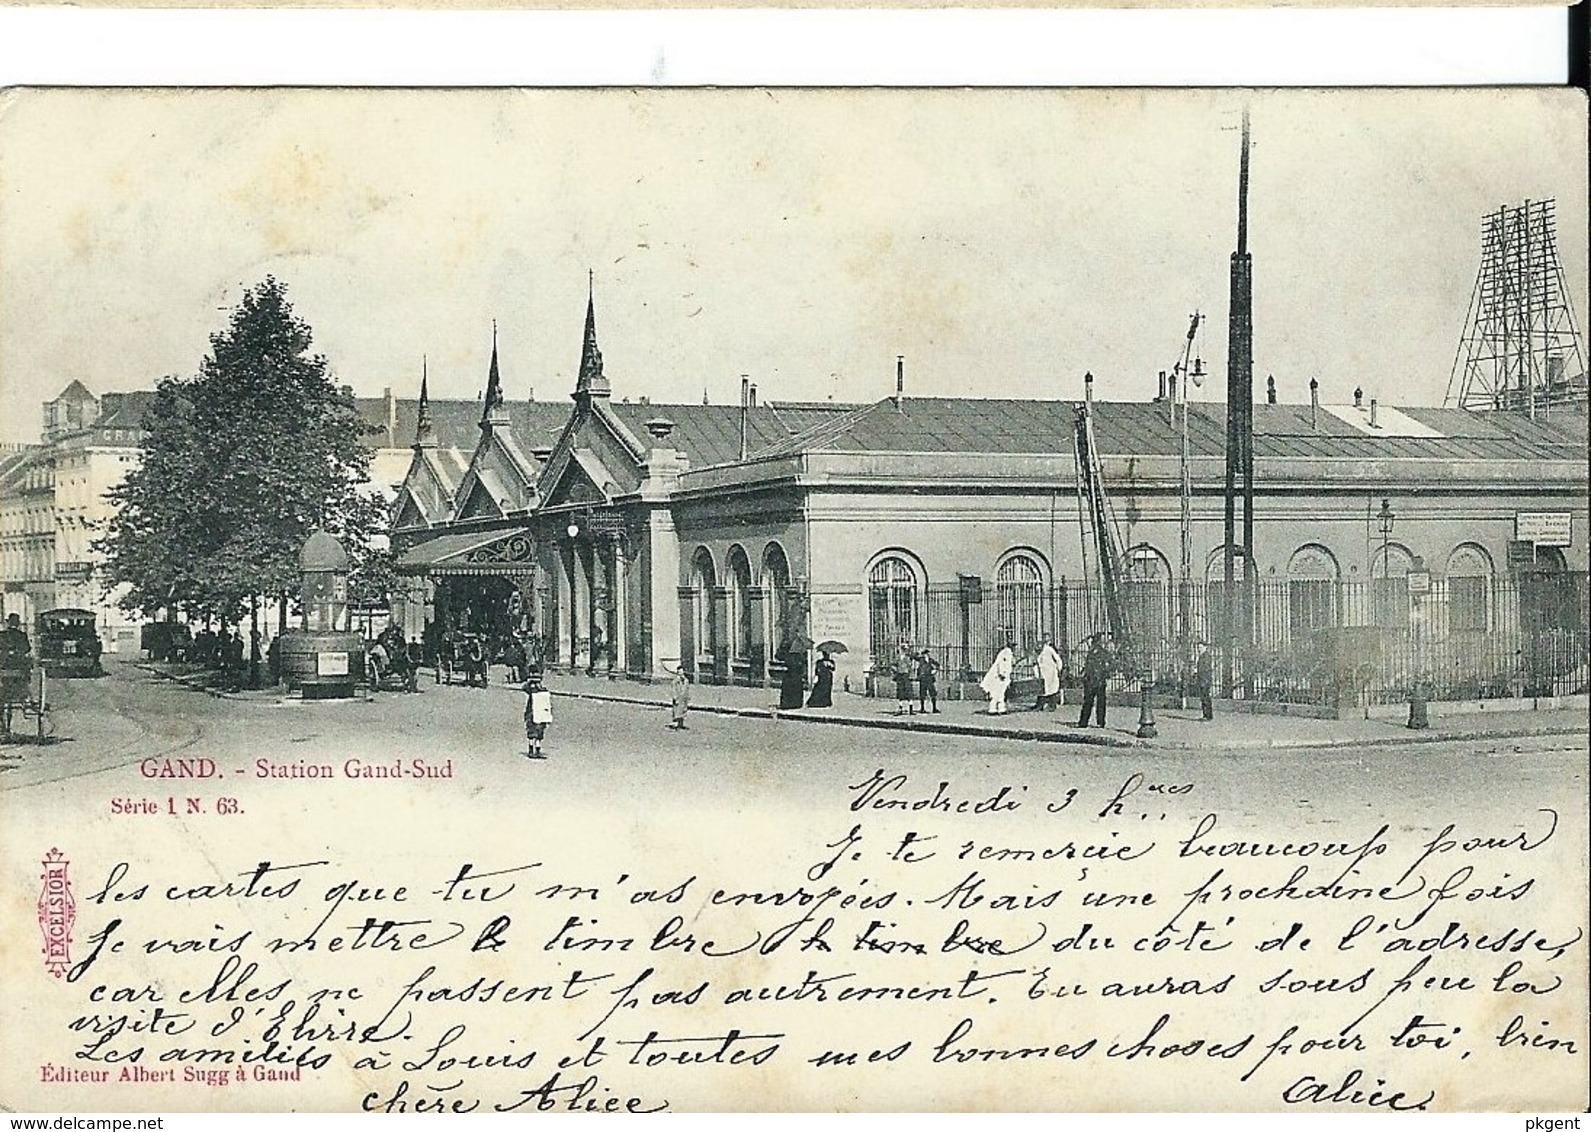 GRAN
GAND. - Station Gand-Sud
Série 1 N. 63.
EXCELSIOR
Vendredi 3 hres
Je te remercie beaucoup pour
les cartes que tu m'as envoyées. Mais une prochaine fois
Je vais mettre le timbre le timbre du côté de l'adresse,
car elles ne passent pas autrement. Tu auras sous peu la
visite d'Elvire.
Les amitiés à Louis et toutes mes bonnes choses pour toi, bien
Éditeur Albert Sugg à Gand
chère Aliee
Alice.
delcampe.net
pkgent